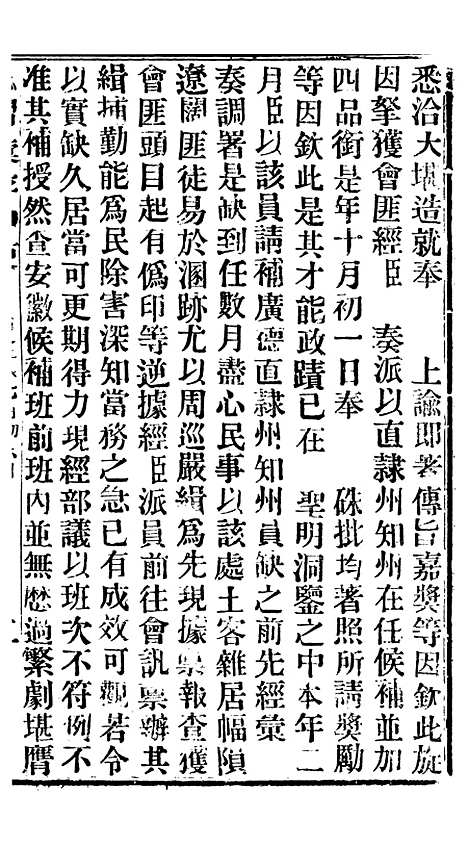 悉洽大堪造就奉　上諭卽著傳旨嘉獎等因欽此旋
因拏獲會匪經臣　奏派以直隸州知州在任候補並加
四品銜是年十月初一日奉　硃批均著照所請獎勵
等因欽此是其才能政蹟已在　聖明洞鑒之中本年二
月臣以該員請補廣德直隸州知州員缺之前先經彙
奏調署是缺到任數月盡心民事以該處土客雜居幅隕
遼闊匪徒易於溷跡尤以周巡嚴緝爲先現據稟報查獲
會匪頭目起有僞印等逆據經臣派員前往會訊稟辦其
緝捕勤能爲民除害深知當務之急已有成效可觀若令
以實缺久居當可更期得力現經部議以班次不符例不
准其補授然查安徽候補班前班內並無歷過繁劇堪膺